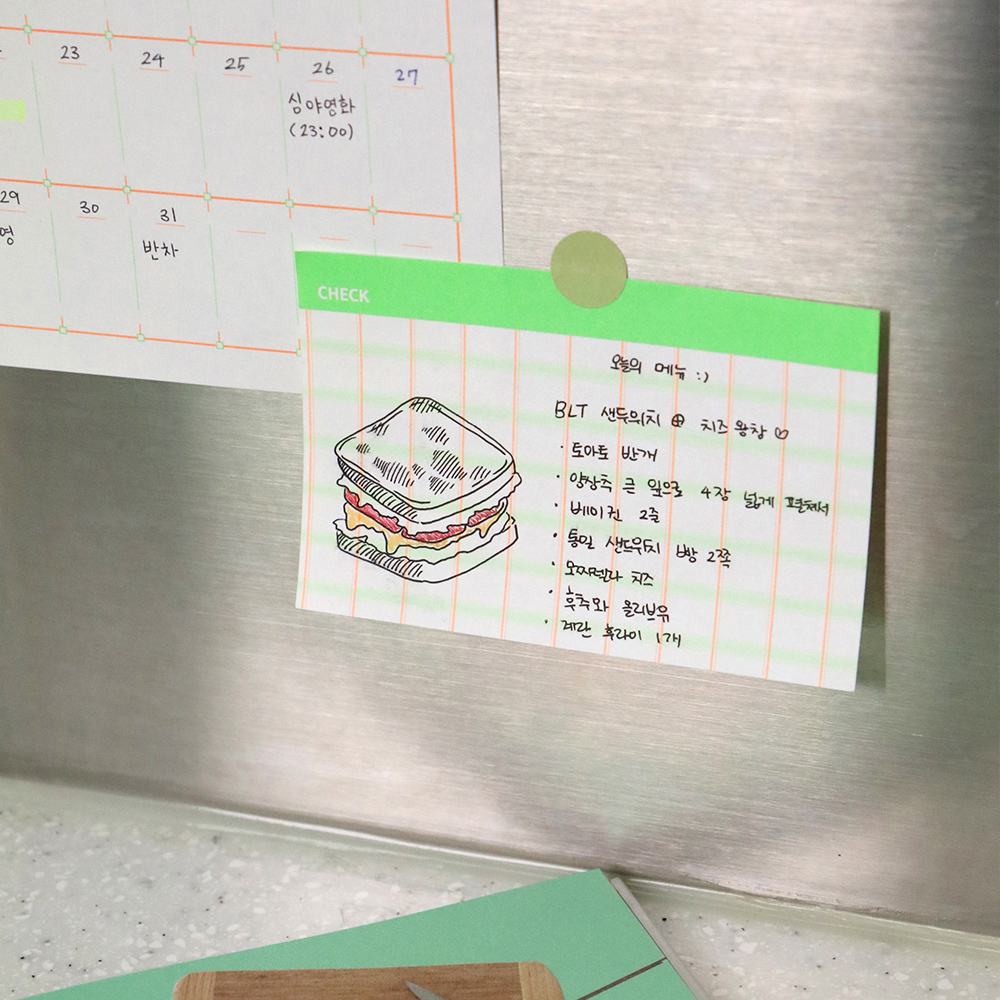 23 24 25 26 27
심야영화
(23:00)
29 30 31
영
반차
CHECK
오늘의 메뉴 :)
BLT 샌드위치 ⊕ 치즈 왕창 ♡
· 토마토 반개
· 양상추 큰 잎으로 4장 넓게 펼쳐서
· 베이컨 2줄
· 통밀 샌드위치 빵 2쪽
· 모짜렐라 치즈
· 후추와 올리브유
· 계란 후라이 1개